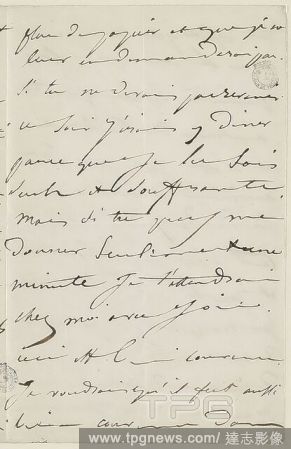 plus de papier et que je ne
leur en demanderai pas.
Si tu ne devais pas revenir
ce soir j'irais y diner
parce que je la sais
seule et souffrante
mais si tu peux me
donner seulement une
minute je t'attendrai
chez moi avec joie.
ceci est l'
Je voudrais qu'il fut aussi
bien
TPG
www.tpgnews.com/ 達志影像